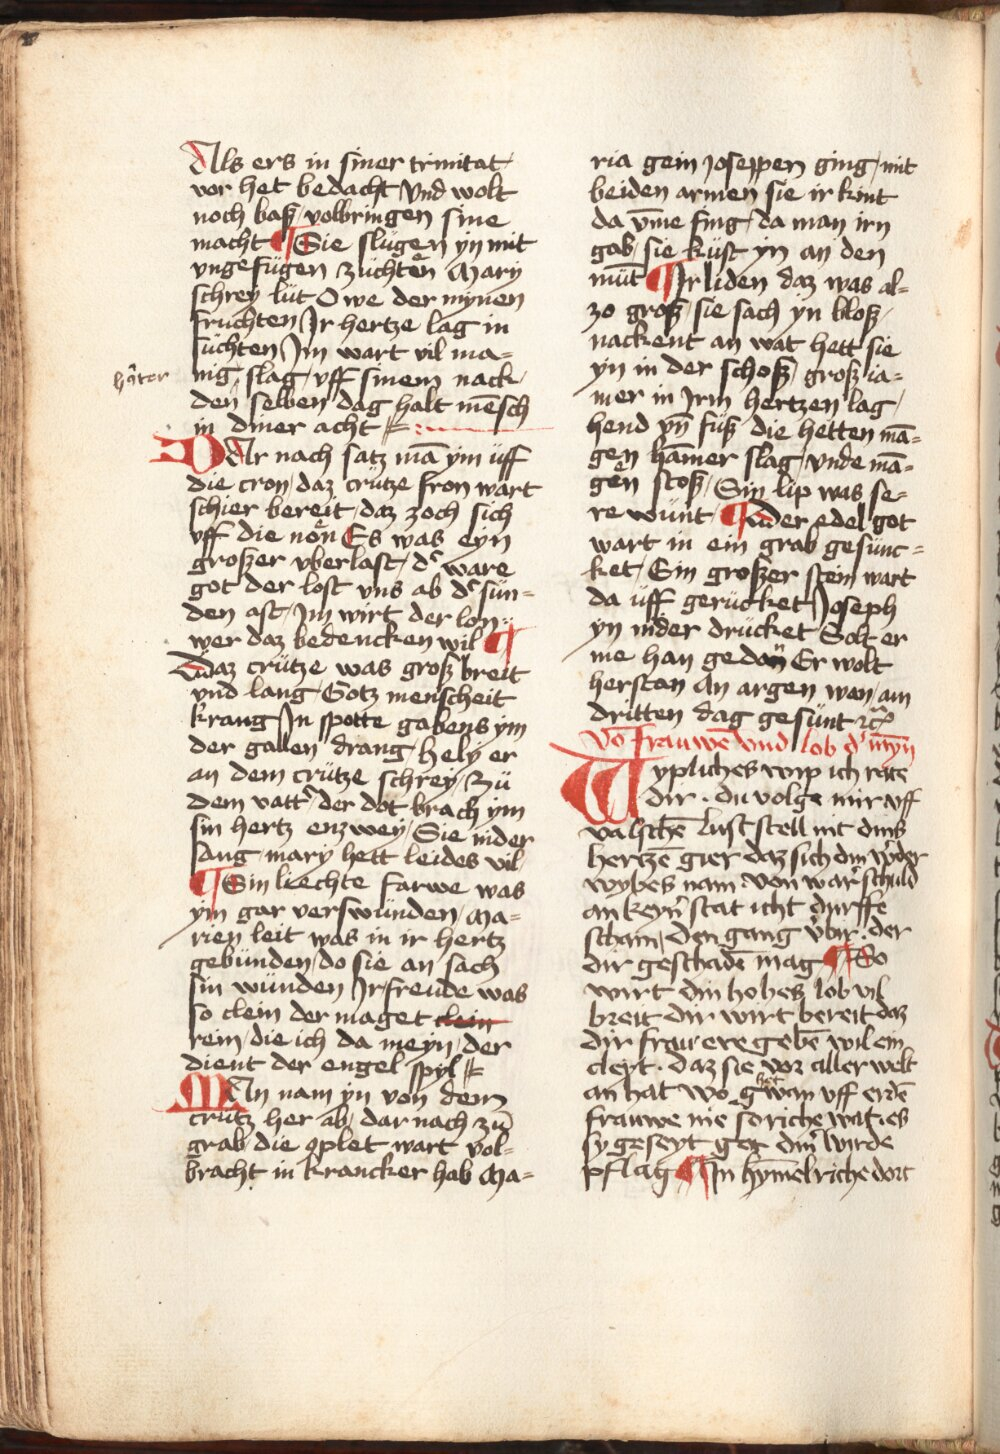 Als ers in siner trinitat /
vor het bedacht Vnd wolt
noch baß / volbringen sine
macht ¶ Sie slügen yn mit
vngefügen züchten Mary
schrey lüt O we der mynen
fruchten / Ir hertze lag in
süchten / Im wart vil ma=
nig / slag / vff sinem nack /
den selben dag halt mēsch
in diner acht
DAr nach satz mā ym üff
die cron / daz crütze fron wart
schier bereit / daz zoch sich
vff die nön Es was eyn
großer vberlast / dˀ ware
got der lost vns ab dˀ sün=
den ast / Im wirt der lon
wer daz bedencken wil ¶
Daz crütze was groß breit
vnd lang / Gotz menscheit
krang / In spotte gabens ym
der gallen drang / hely er
an dem crütze schrey / Zü
dem vattˀ / der dot brach ym
sin hertz enzwey / Sie nider
sang / mary hett leides vil /
¶ Sin liechte farwe was
ym gar verswünden / Ma=
rien leit was in ir hertz
gebünden / do sie an sach
sin wünden Ir freude was
so clein der maget clein
rein / die ich da meyn / der
dient der engel spyl
MAn nam yn von dem
crütz her ab / dar nach zü
grab / die oplet wart vol=
bracht in krancker hab Ma=
ria gein Joseppen ging / mit
beiden armen sie ir kint
da vm̄e fing / da man irn
gab / sie küst yn an den
münt ¶ Ir liden daz was al=
zo groß / sie sach yn bloß /
nackent an wat hett sie
yn in der schoß / groß ia=
mer in Irm hertzen lag /
hend vn̄ füß die hetten mā=
gen hāmer slag / vnde mā=
gen stoß / Sin lip was se=
re wünt / ¶ Der edel got
wart in ein grab gesünc=
ket / Ein großer stein wart
da uff gerücket / Joseph
yn nider drücket Solt er
nie han gedon Er wolt
herstan An argen won / am
dritten dag gesünt ꝛcͣ
Vō frauwē vnd lob dˀ mȳn
WYpliches wip ich rate
dir . du volge mir vff
valschē lust stell nit dins
hertzē gier daz sich din wˀder
wybes nam von warˀ schuld
an keynˀ stat icht durffe
scham / den gang vˀbir . der
dir geschadē mag ¶ So
wirt din hohes lob vil
breit dir wirt bereit daz
dir frau ere gebē wil ein
cleyt . daz sie vor aller welt
an hat wo gˀwan vff erdē
frauwe nie so riche wat . es
sy geseyt ger dinˀ wirde
pflag ¶ In hym̄elriche dort